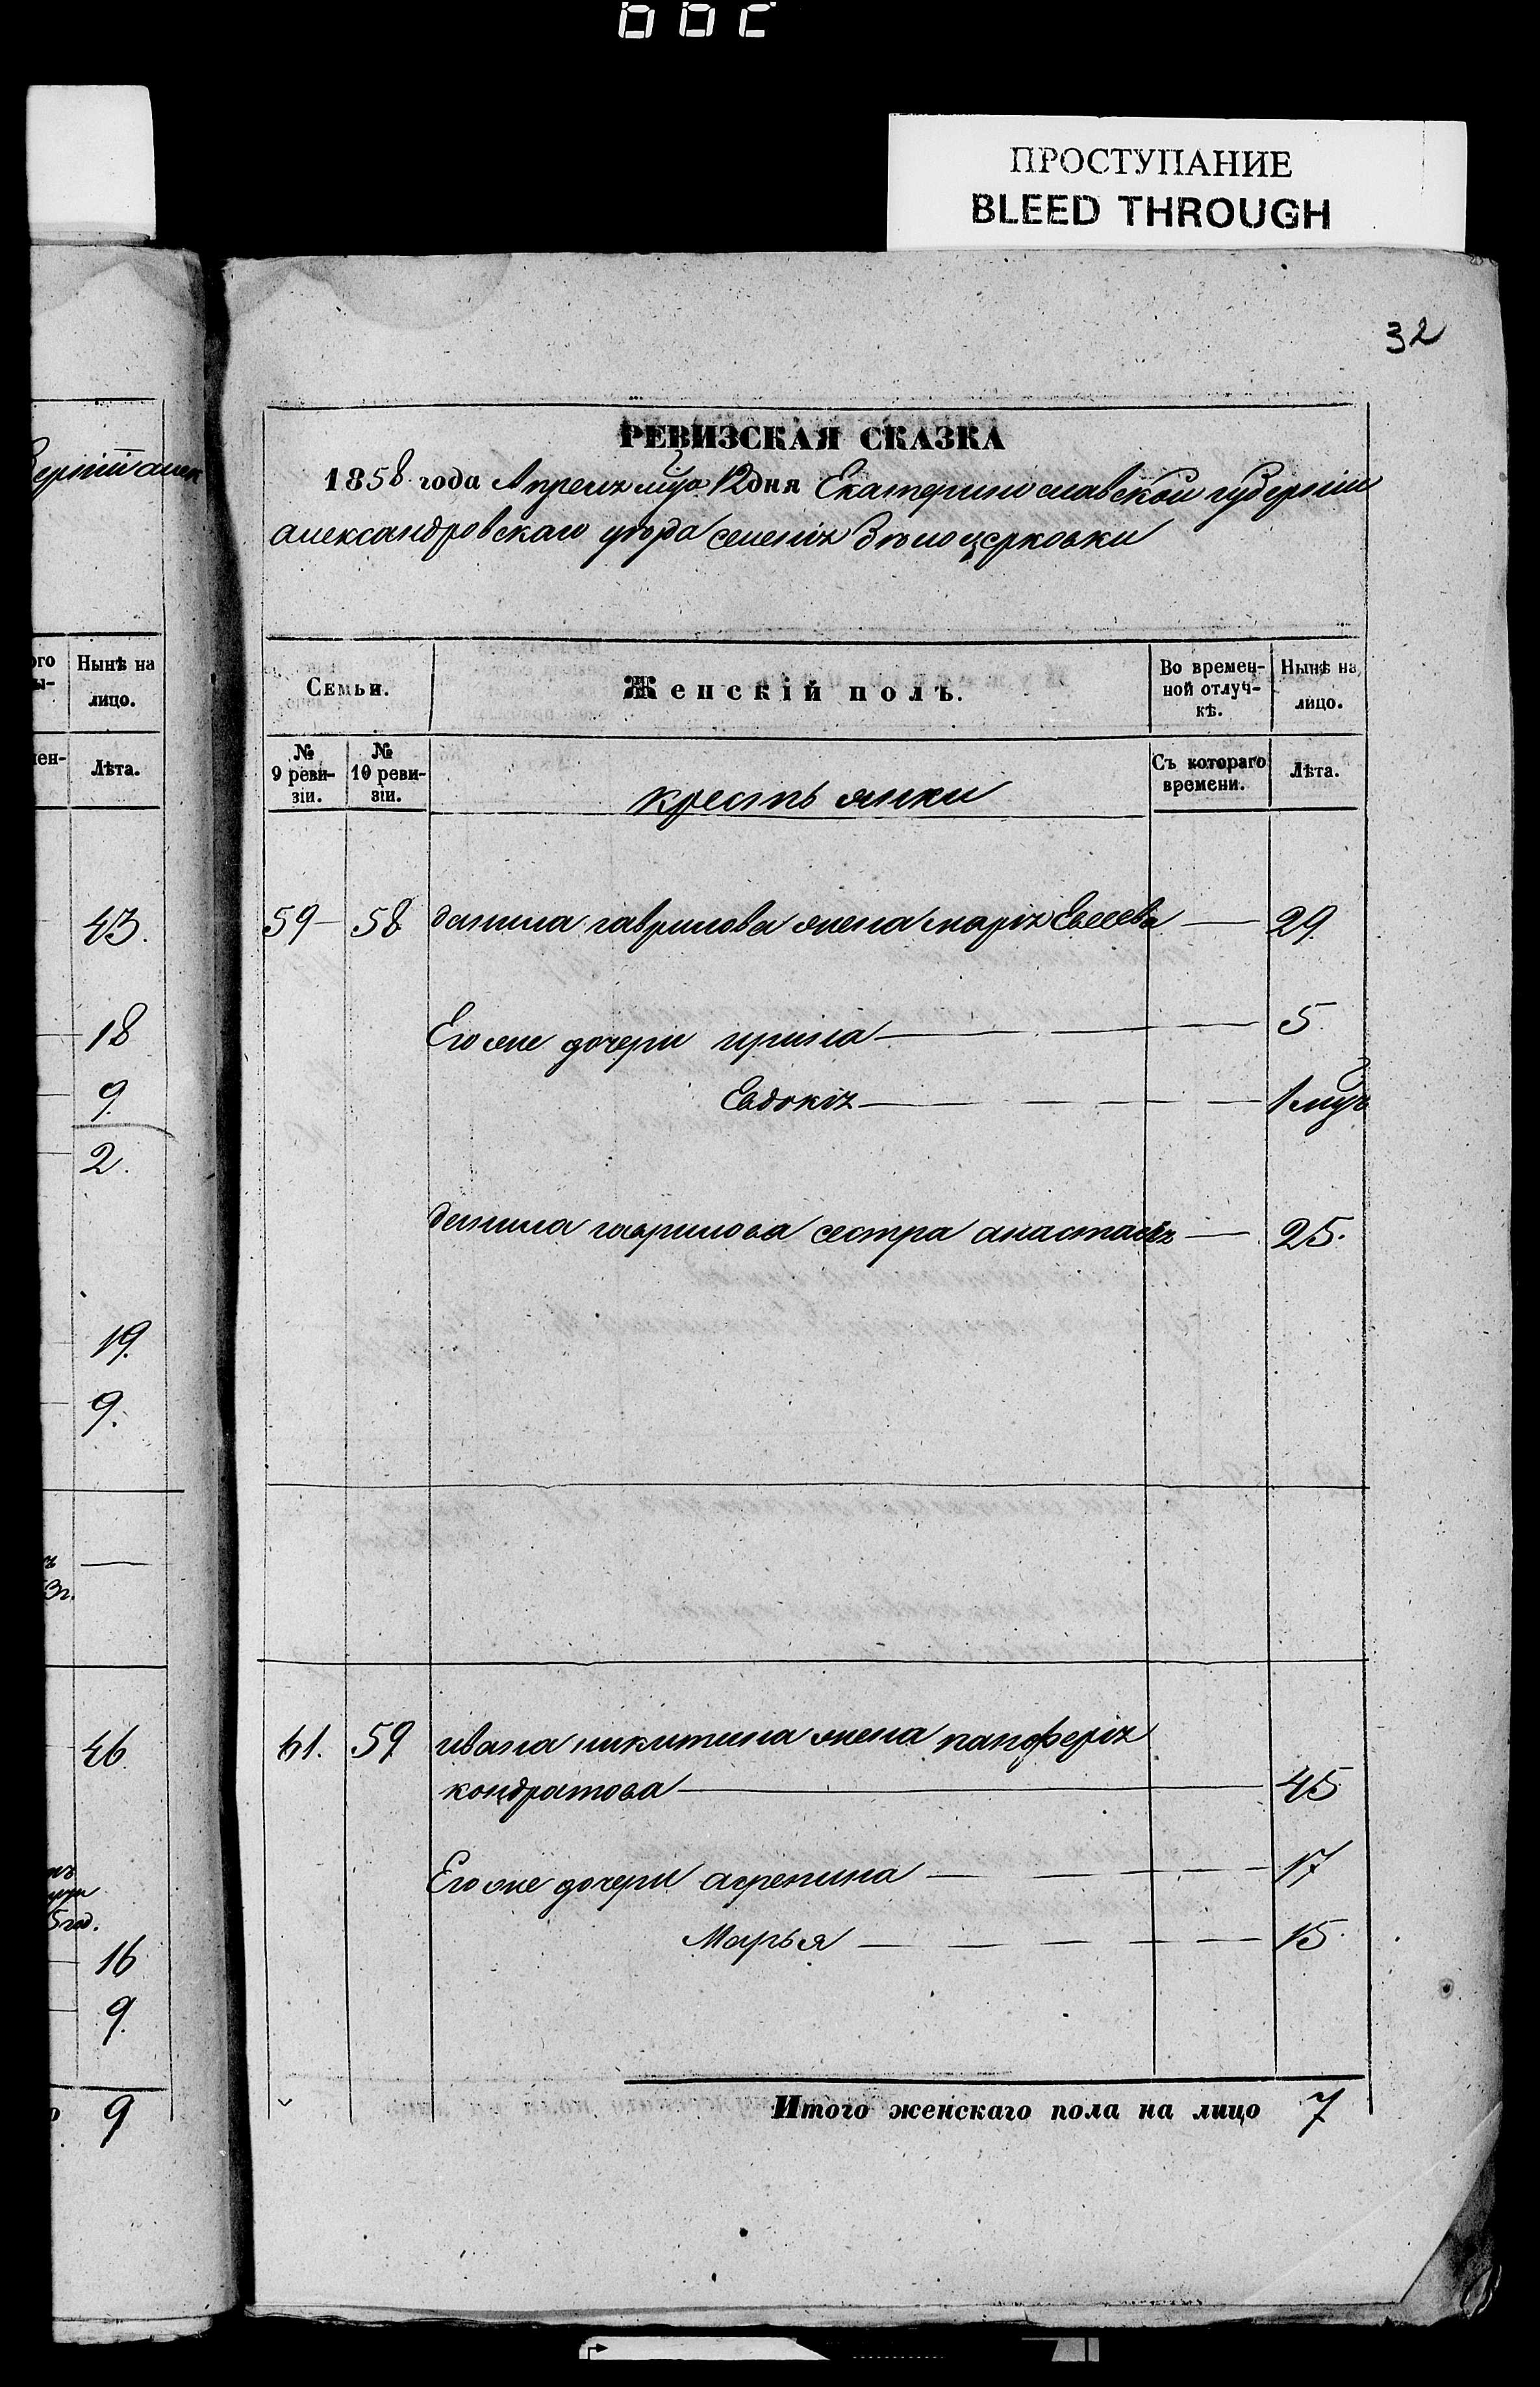 ПРОСТУПАНИЕ
BLEED THROUGH
32
РЕВИЗСКАЯ СКАЗКА
1858 года Апреля мца 12 дня Екатеринославской губернии
александровскаго уезда селения Белоцерковки
Семьи.
Женскій полъ.
Во времен-
ной отлуч-
кѣ.
Нынѣ на
лицо.
№
9 реви-
зіи.
№
10 реви-
зіи.
крестьянки
Съ котораго
времени.
Лѣта.
59 58 данила гаврилова жена марія Евсеева 29
Его же дочери ирина 5
Евдокія 1 мцъ
данила гаврилова сестра анастасія 25.
61. 59 ивана никитина жена панферія
кондратова 45
Его же дочери агрепина 17
Марья 15
Итого женскаго пола на лицо 7
Нынѣ на
лицо.
Лѣта.
43.
18
9
2.
19.
9.
46
16
9.
9